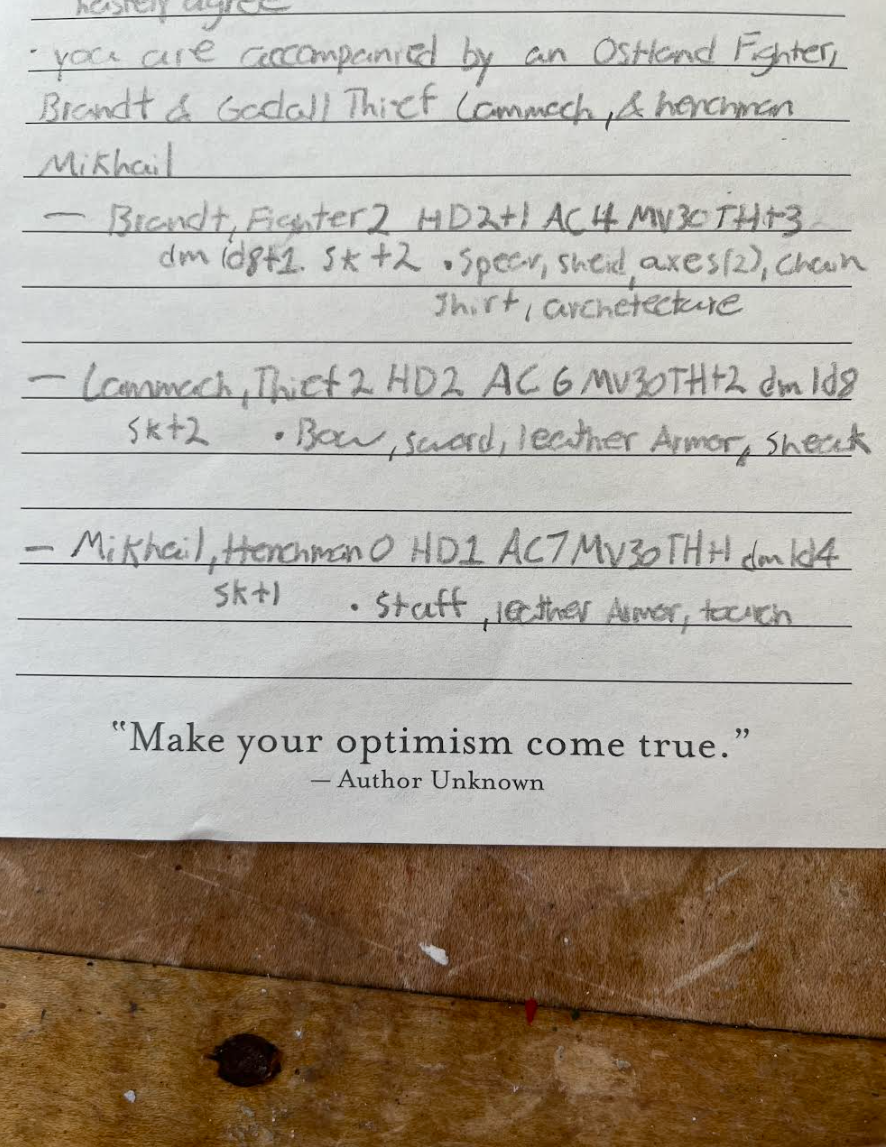 hastely agree
· you are accompanied by an Ostland Fighter,
Brandt & Gadall Thief Lammach, & henchman
Mikhail
— Brandt, Fighter 2 HD2+1 AC4 MV30 TH+3
dm 1d8+1. SK+2 • Spear, sheid, axes(2), chain
shirt, archetecture
— Lammach, Thief 2 HD2 AC 6 MV30 TH+2 dm 1d8
SK+2 • Bow, sword, leather Armor, sneak
— Mikhail, Henchman 0 HD1 AC7 MV30 TH+1 dm 1d4
SK+1 • Staff, leather Armor, tourch
“Make your optimism come true.”
— Author Unknown